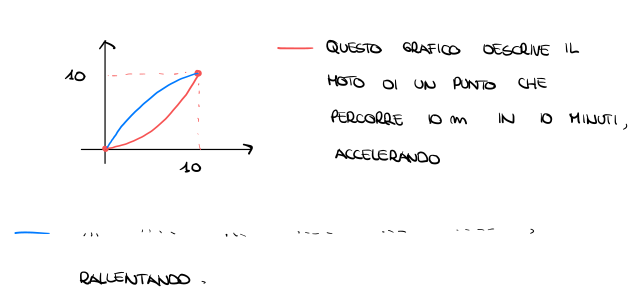 10
10
QUESTO GRAFICO DESCRIVE IL
MOTO DI UN PUNTO CHE
PERCORRE 10 m IN 10 MINUTI,
ACCELERANDO
RALLENTANDO.